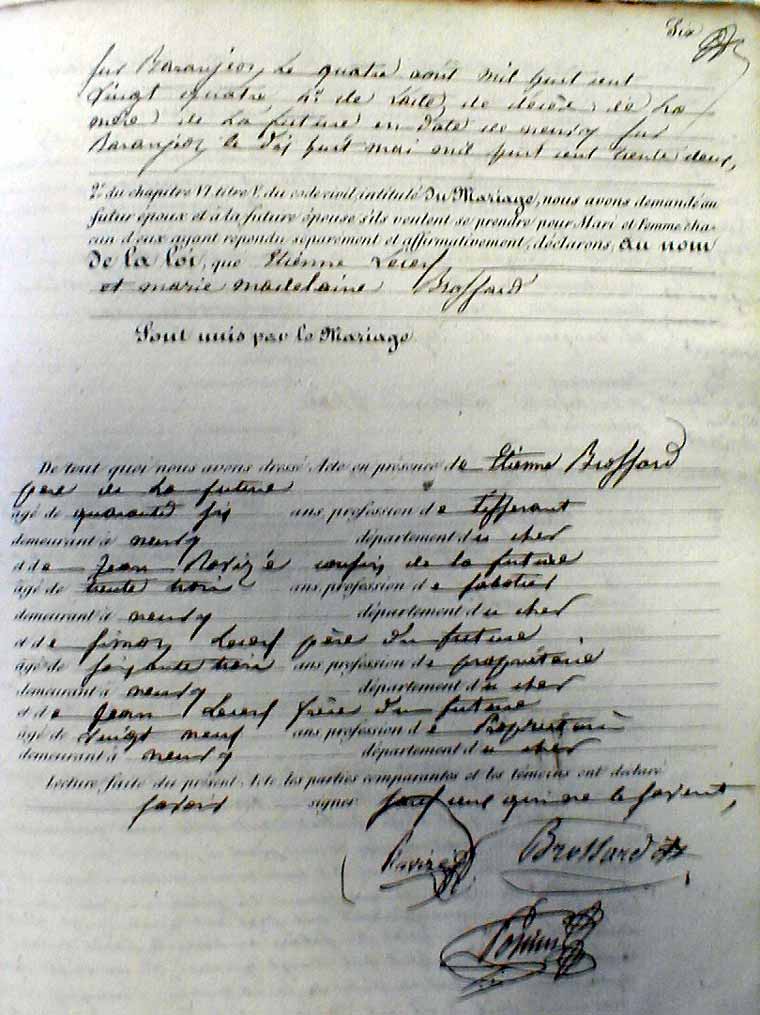 Six
sur Baranjon, le quatre aout mil huit cent
vingt quatre 4° de l'acte de décès de la
mère de la future en date de neuvy sur
Baranjon le dix huit mai mil huit cent trente deux,
2° du chapitre VI titre V. du code civil, intitulé Du Mariage, nous avons demandé au
futur époux et à la future épouse s'ils veulent se prendre pour Mari et Femme cha-
cun d'eux ayant repondu séparément et affirmativement, déclarons, au nom
de la loi, que Etiénne
et marie madelaine Brossard
Sont unis par le Mariage
De tout quoi nous avons dressé Acte en présence de Etienne Brossard
père de la future
âgé de quarante six ans profession de tisserant
demeurant à neuvy département du cher
et de Jean Ravizé cousin de la future
âgé de trente trois ans profession de sabotier
demeurant à neuvy département du cher
et de simon père du future
âgé de soixante trois ans profession de propriétaire
demeurant à neuvy département du cher
et de Jean frère du future
âgé de vingt neuf ans profession de Propriétaire
demeurant à neuvy département du cher
Lecture faite du présent Acte les parties comparantes et les témoins ont déclaré
savoir signer sauf ceux qui ne le savent,
Ravizé Brossard